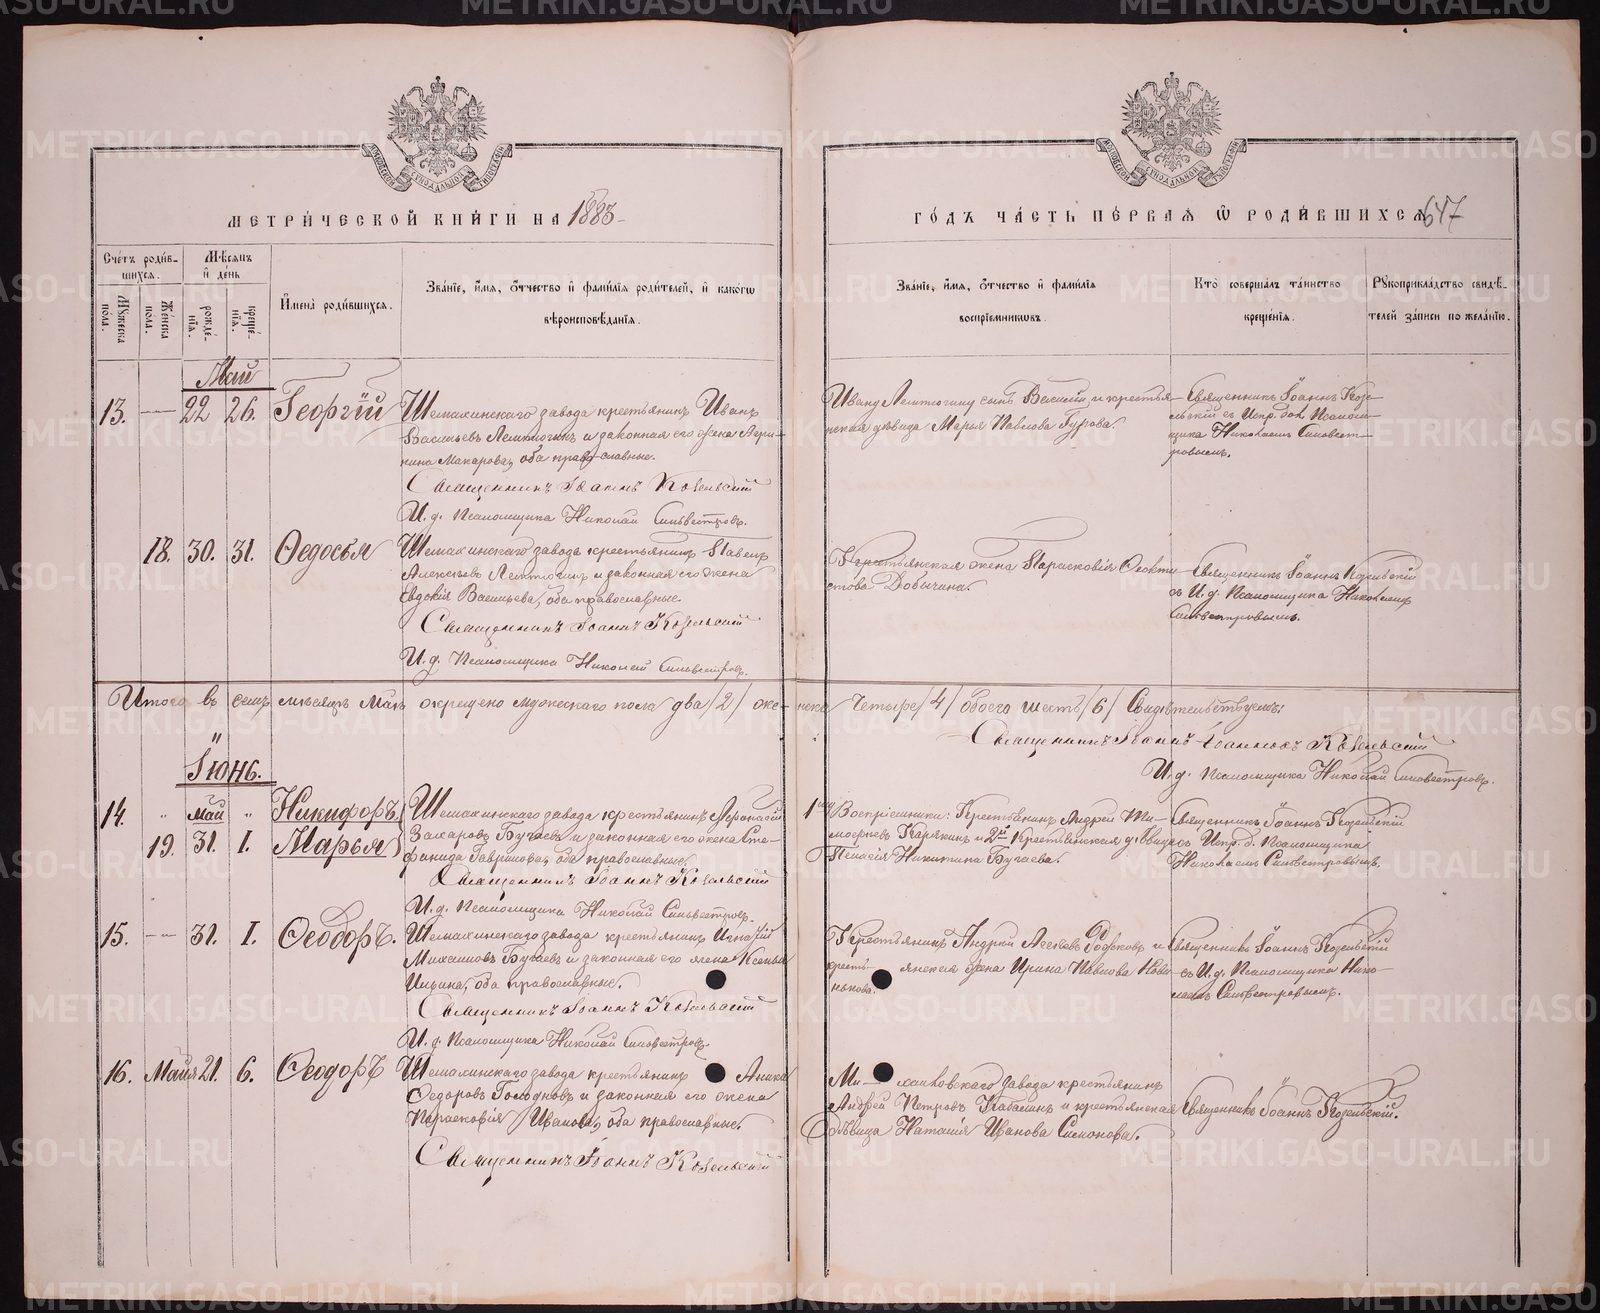 МЕТРИ́ЧЕСКОЙ КНИ́ГИ НА 1883
ГО́ДЪ ЧА́СТЬ ПЕ́РВАЯ Ѿ РОДИ́ВШИХСЯ 647
Сче́тъ роди́в-
шихся.
Мꙋжеска пола.
Же́нска по́ла.
Мѣ́сяцъ и де́нь
рожде́-нїя.
креще́-нїя.
Имена̀ роди́вшихся.
Зва́нїе, и́мя, ѻ́тчество и фами́лїя роди́телей, и како́гѡ
вѣроисповѣ́данїя.
Зва́нїе, и́мя, ѻ́тчество и фами́лїя
воспрїе́мниковъ.
Кто̀ соверша́лъ та́инство
креще́нїя.
Рꙋкоприкла́дство свидѣ́-
телей за́писи по жела́нїю.
Май
13. — 22 26. Георгій
Шемахинскаго завода крестьянинъ Иванъ
Васильевъ Лептюгинъ и законная его жена Агри-
пина Макарова, оба православные.
Священникъ Іоаннъ Козельскій
И. д. Псаломщика Николай Сильвестровъ.
Ивану Лептюгину сынъ Василій и крестья-
нская дѣвица Марья Павлова Гурова.
Священникъ Іоаннъ Козе-
льскій съ Испр. дол. Псалом-
щика Николаемъ Сильвест-
ровымъ.
18. 30. 31. Ѳедосья
Шемахинскаго завода крестьянинъ Павелъ
Алексѣевъ Лептюгинъ и законная его жена
Евдокія Васильева, оба православные.
Священникъ Іоаннъ Козельскій
И. д. Псаломщика Николай Сильвестровъ.
Крестьянская жена Парасковія Ѳеокти-
стова Добычина.
Священникъ Іоаннъ Козельскій
съ И. д. Псаломщика Николаемъ
Сильвестровымъ.
Итого въ семъ мѣсяцѣ Маѣ окрещено мужескаго пола два /2/ же-
нска четыре /4/ обоего шесть /6/ Свидѣтельствуемъ:
Священникъ Іоаннъ Іоанновъ Козельскій
И. д. Псаломщика Николай Сильвестровъ.
Іюнь.
14. Май Никифоръ
19. 31. 1. Марья
Шемахинскаго завода крестьянинъ Аѳонасій
Захаровъ Бугаевъ и законная его жена Сте-
фанида Гаврилова, оба православные.
Священникъ Іоаннъ Козельскій
И. д. Псаломщика Николай Сильвестровъ.
Воспріемники: Крестьянинъ Андрей Ти-
моѳеевъ Карякинъ и 2й Крестьянская дѣвица
Пелагія Никитина Бугаева.
Священникъ Іоаннъ Козельскій
съ Испр. д. Псаломщика
Николаемъ Сильвестровымъ.
15. — 31. 1. Ѳеодоръ.
Шемахинскаго завода крестьянинъ Игнатій
Михаиловъ Бугаевъ и законная его жена Ксенья
Ильина, оба православные.
Священникъ Іоаннъ Козельскій
И. д. Псаломщика Николай Сильвестровъ.
Крестьянинъ Андрей
кресть-янская жена Ирина Павлова Нови-
нькова.
Священникъ Іоаннъ Козельскій
съ И. д. Псаломщика Нико-
лаемъ Сильвестровымъ.
16. Майя 21. 6. Ѳеодоръ
Шемахинскаго завода крестьянинъ Аника
Ѳедоровъ Голодновъ и законная его жена
Парасковія Иванова, оба православные.
Священникъ Іоаннъ Козельскій
Ми-хаиловскаго завода крестьянинъ
Андрей Петровъ Кабалинъ и крестьянская
дѣвица Наталія Иванова Симонова.
Священникъ Іоаннъ Козельскій.
METRIKI.GASO-URAL.RU